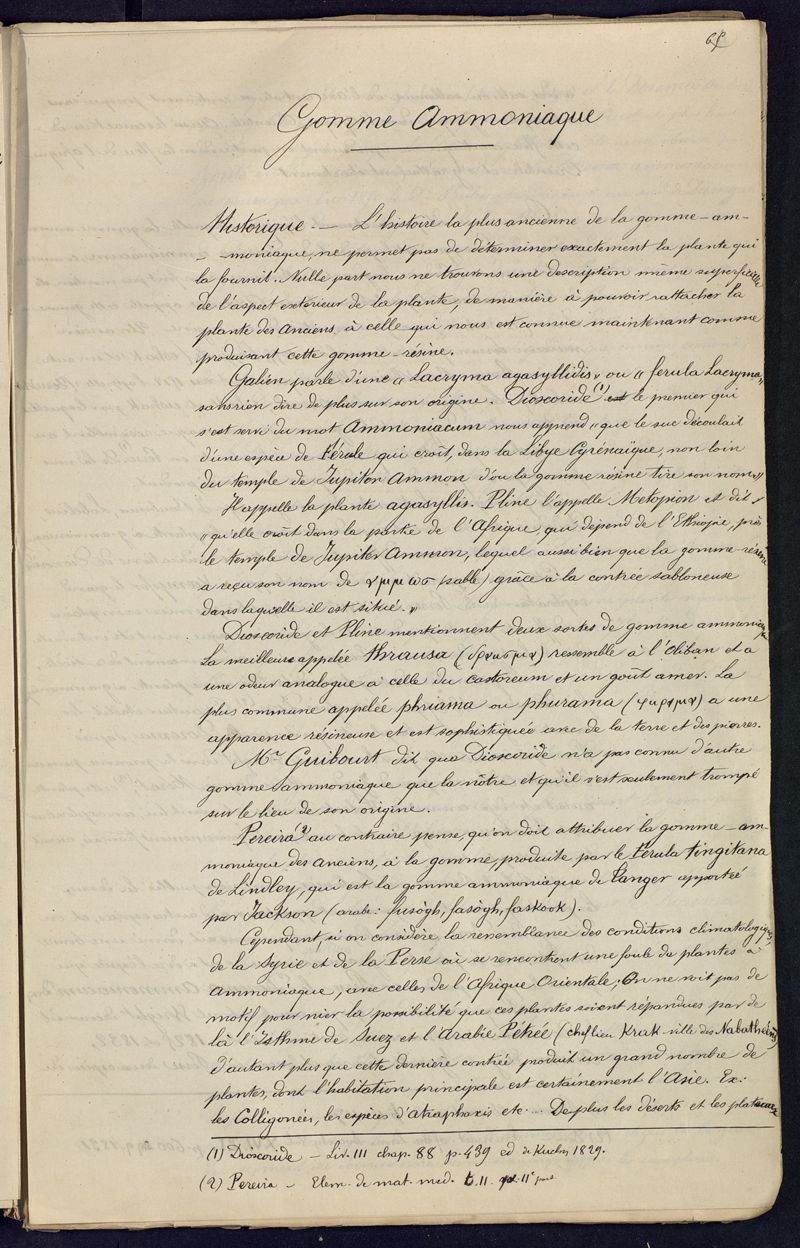 65
Gomme Ammoniaque
Historique. — L'histoire la plus ancienne de la gomme-am-
-moniaque, ne permet pas de déterminer exactement la plante qui
la fournit. Nulle part nous ne trouvons une description même superficielle
de l'aspect extérieur de la plante, de manière à pouvoir rattacher la
plante des Anciens à celle qui nous est connue maintenant comme
produisant cette gomme-résine.
Galien parle d'une « Lacryma agasyllidis » ou « ferula Lacryma »
sans rien dire de plus sur son origine. Dioscoride (1) est le premier qui
s'est servi du mot Ammoniacum nous apprend « que le suc découlait
d'une espèce de Férule qui croît, dans la Libye Cyrénaïque, non loin
du temple de Jupiton Ammon d'ou la gomme résine tire son nom »
Il appelle la plante agasyllis. Pline l'appelle Metopion et dit
« qu'elle croît dans la partie de l'Afrique, qui dépend de l'Ethiopie, près
le temple de Jupiter Ammon, lequel aussi bien que la gomme-résine
a reçu son nom de αμμωσ (sable) grâce à la contrée sabloneuse
dans laquelle il est situé. »
Dioscoride et Pline mentionnent deux sortes de gomme ammoniaque
La meilleure appelée thrausa (θραυσμα) ressemble à l'Oliban et a
une odeur analogue à celle du castoreum et un goût amer. La
plus commune appelée phriama ou phurama (φυραμα) a une
apparence résineuse et est sophistiquée avec de la terre et des pierres.
Mr Guibourt dit que Dioscoride n'a pas connu d'autre
gomme-ammoniaque que la nôtre et qu'il s'est seulement trompé
sur le lieu de son origine.
Pereira (2) au contraire pense, qu'on doit attribuer la gomme-am-
moniaque des Anciens, à la gomme, produite par le Ferula tingitana
de Lindley, qui est la gomme ammoniaque de Tanger apportée
par Jackson (arabe: fusògh, fasògh, faskook).
Cependant, si on considère la ressemblance des conditions climatologiques
de la Syrie et de la Perse où se rencontrent une foule de plantes à
Ammoniaque, avec celles de l'Afrique Orientale; On ne voit pas de
motif pour nier la possibilité que ces plantes soient répandues par de
là l'Isthme de Suez et l'Arabie Pétrée (chef lieu Krak-ville des Nabathéens)
d'autant plus que cette dernière contrée produit un grand nombre de
plantes, dont l'habitation principale est certainement l'Asie. Ex:
les Colligonées, les espèces d'atraphaxis etc... De plus les déserts et les plateaux
(1) Dioscoride — Liv. III chap. 88 p. 439 ed de Kuehn 1829.
(2) Pereira — Elem. de mat. med. t. II. IIe part